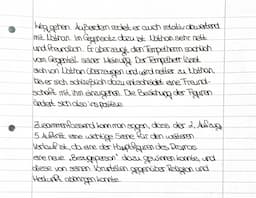 weg gehen. Außerdem redet er auch relativ abwertend
mit Nathan. Im Gegensatz dazu ist Nathan sehr nett
und freundlich. Er überzeugt den Tempelherrn sachlich
vom Gegenteil seiner Meinung. Der Tempelherr lässt
sich von Nathan überzeugen und wird netter zu Nathan,
bevor er sich schließlich dazu entscheidet eine Freund-
schaft mit ihm einzugehen. Die Beziehung der Figuren
ändert sich also ins positive.
Zusammenfassend kann man sagen, dass der 2. Aufzug
5. Auftritt eine wichtige Szene für den weiteren
Verlauf ist, da eine der Hauptfiguren des Dramas
eine neue „Bezugsperson" dazu gewinnen konnte, und
diese von seinen Vorurteilen gegenüber Religion und
Herkunft abbringen konnte.